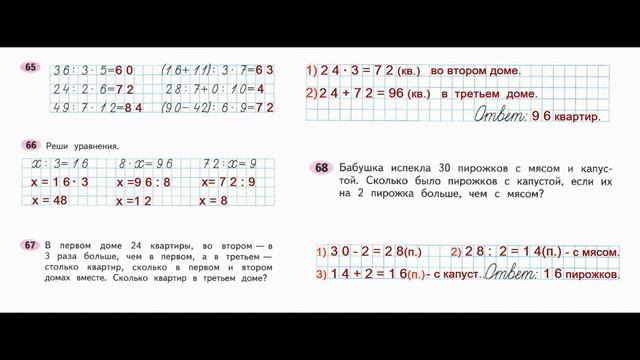 65
36 : 3 · 5 = 60 (16 + 11) : 3 · 7 = 63
24 : 2 · 6 = 72 28 : 7 + 0 : 10 = 4
49 : 7 · 12 = 84 (90 – 42) : 6 · 9 = 72
66 Реши уравнения.
x : 3 = 16 8 · x = 96 72 : x = 9
x = 16 · 3 x = 96 : 8 x = 72 : 9
x = 48 x = 12 x = 8
67 В первом доме 24 квартиры, во втором — в
3 раза больше, чем в первом, а в третьем —
столько квартир, сколько в первом и втором
домах вместе. Сколько квартир в третьем доме?
1) 24 · 3 = 72 (кв.) во втором доме.
2) 24 + 72 = 96 (кв.) в третьем доме.
Ответ: 96 квартир.
68 Бабушка испекла 30 пирожков с мясом и капус-
той. Сколько было пирожков с капустой, если их
на 2 пирожка больше, чем с мясом?
1) 30 - 2 = 28 (п.) 2) 28 : 2 = 14 (п.) - с мясом.
3) 14 + 2 = 16 (п.) - с капуст. Ответ: 16 пирожков.